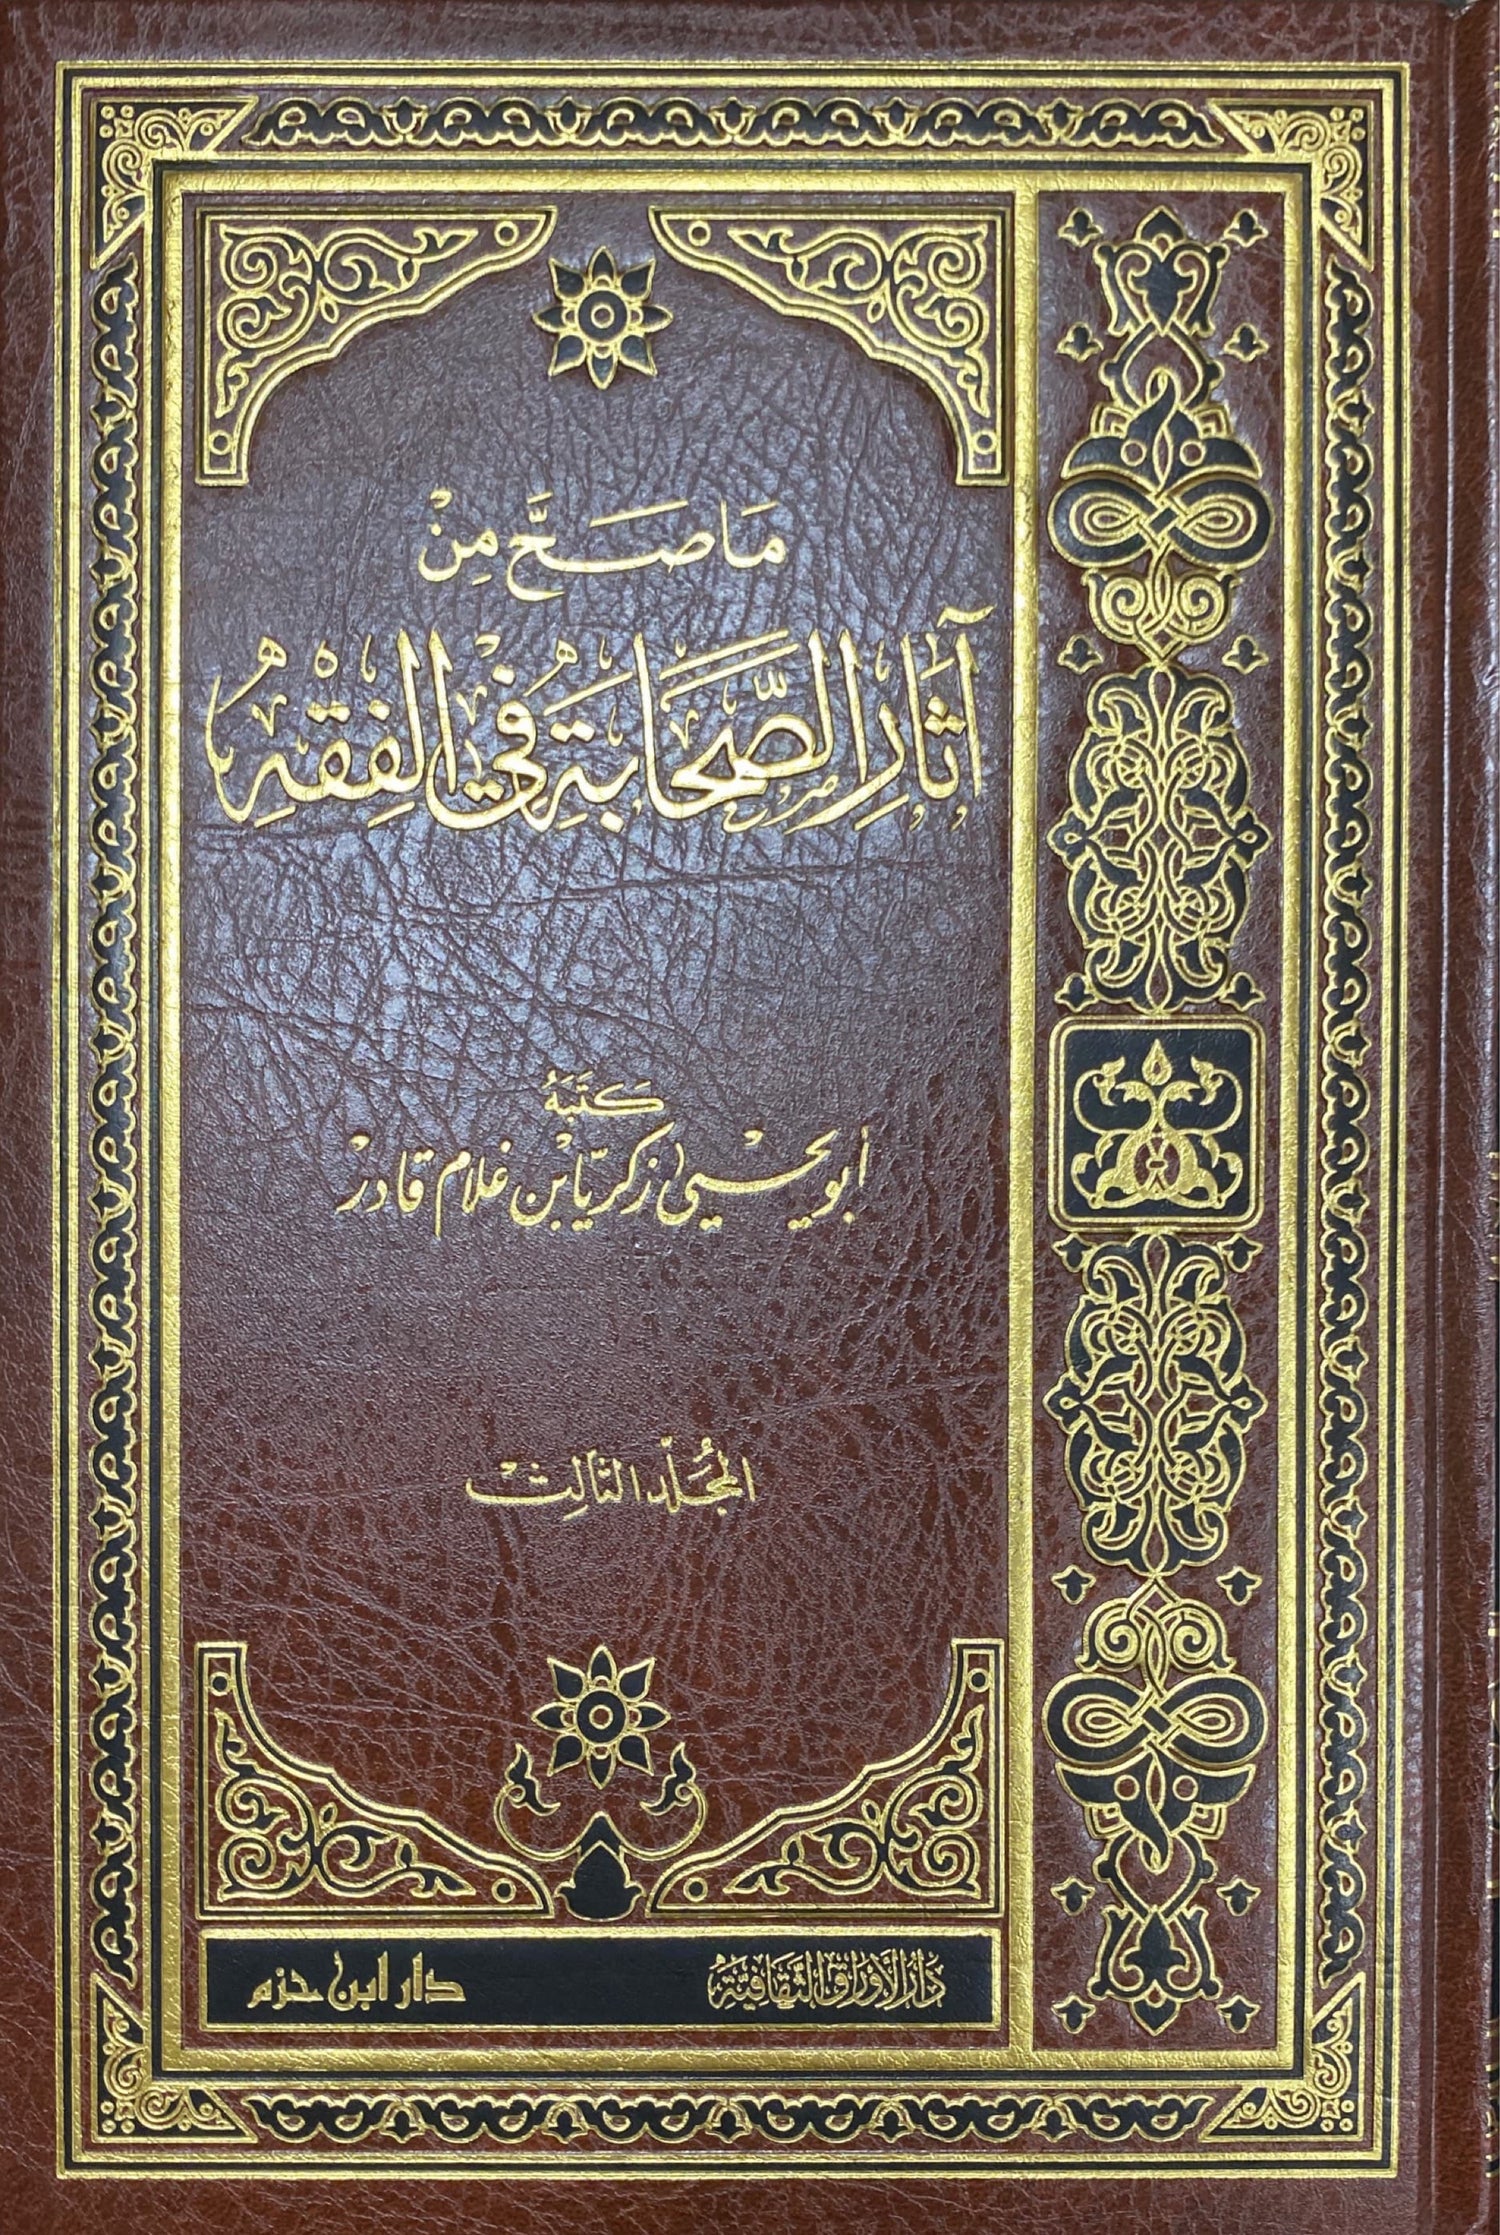 مَا صَحَّ مِنْ
آثَارِ الصَّحَابَةِ فِي الفِقْهِ
كَتَبَهُ
أبو يحيى زكريّا بن غلام قادر
المُجَلّد الثَالِث
دَارُ الأَوْرَاقِ الثَّقَافِيَّةِ
دار ابن حزم